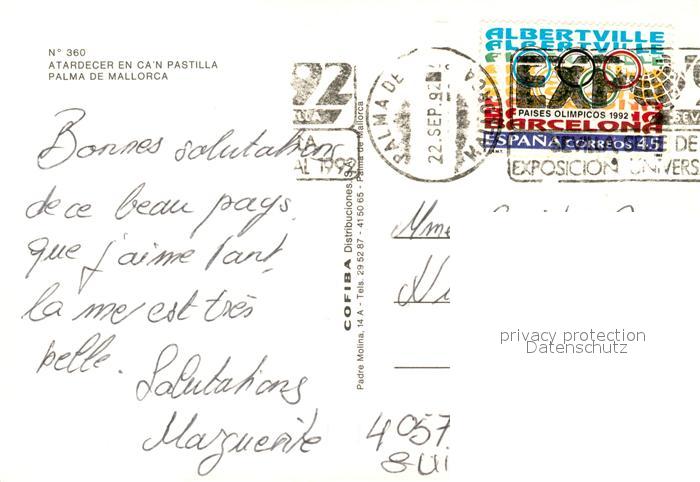 N° 360
ATARDECER EN CA'N PASTILLA
PALMA DE MALLORCA
Bonnes salutations
de ce beau pays.
que j'aime tant.
la mer est très
belle.
Salutations
Marguerite
COFIBA Distribuciones, S.
Padre Molina, 14 A - Tels. 29 52 87 - 41 50 65 - Palma de Mallorca
92
AL 1992
PALMA DE
22.SEP.92
ALBERTVILLE
ALBERTVILLE
EXPO
PAISES OLIMPICOS 1992
BARCELONA
ESPAÑA CORREOS 45
DE
EXPOSICION UNIVERS
Mme
4057
SUI
privacy protection
Datenschutz